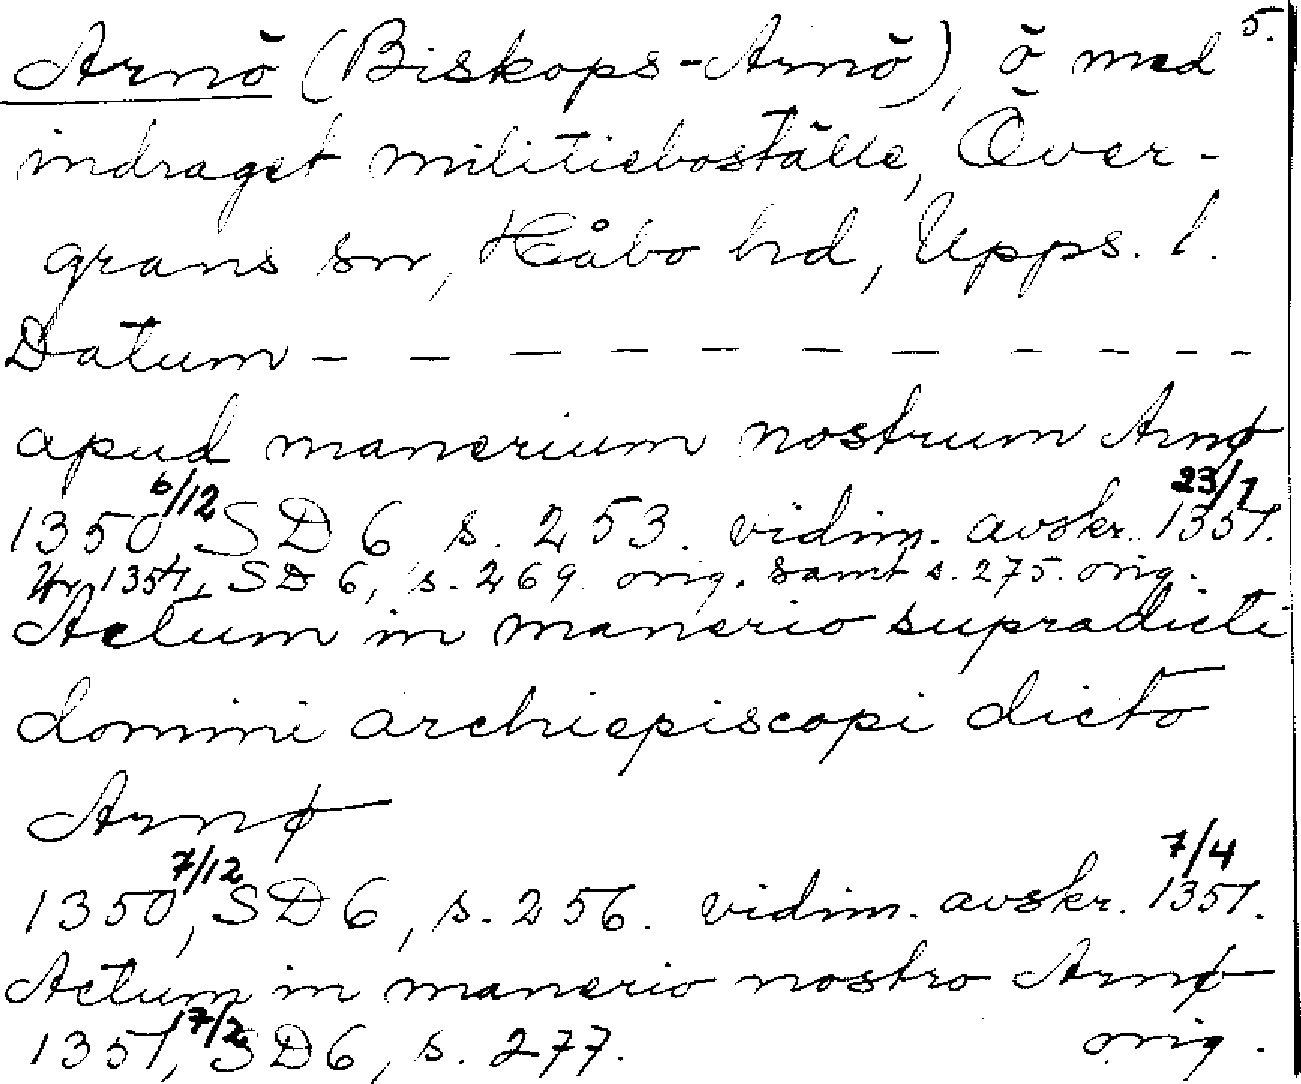 Arnö (Biskops-Arnö), ö med 5.
indraget militieboställe, Över-
grans sn, Håbo hd, Upps. l.
Datum - - - - - - - - - - -
apud manerium nostrum Arnø
1350 6/12, SD 6 s. 253. vidim. avskr. 1351 23/1.
1351, SD 6, s. 269. orig. samt s. 275. orig.
Actum in manerio supradicti
domini archiepiscopi dicto
Arnø
1350 7/12, SD 6, s. 256. vidim. avskr. 1351 7/4.
Actum in manerio nostro Arnø
1351 17/2, SD 6, s. 277. orig.